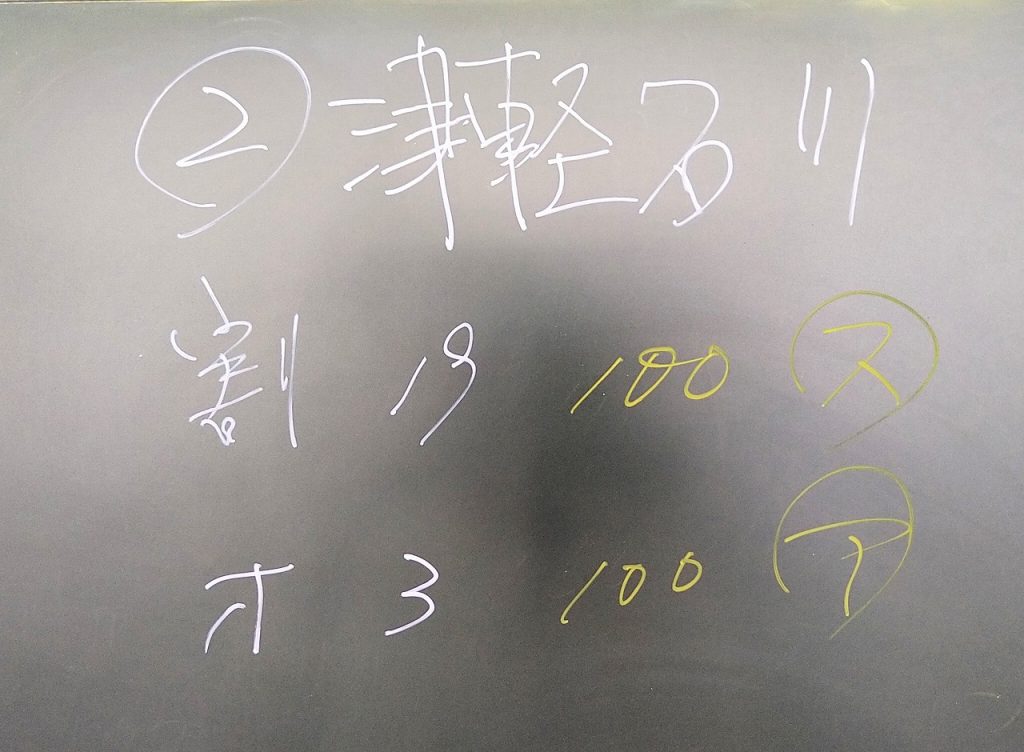 ② 津軽石川
割 19 100 ㋜
オ 3 100 ㋐